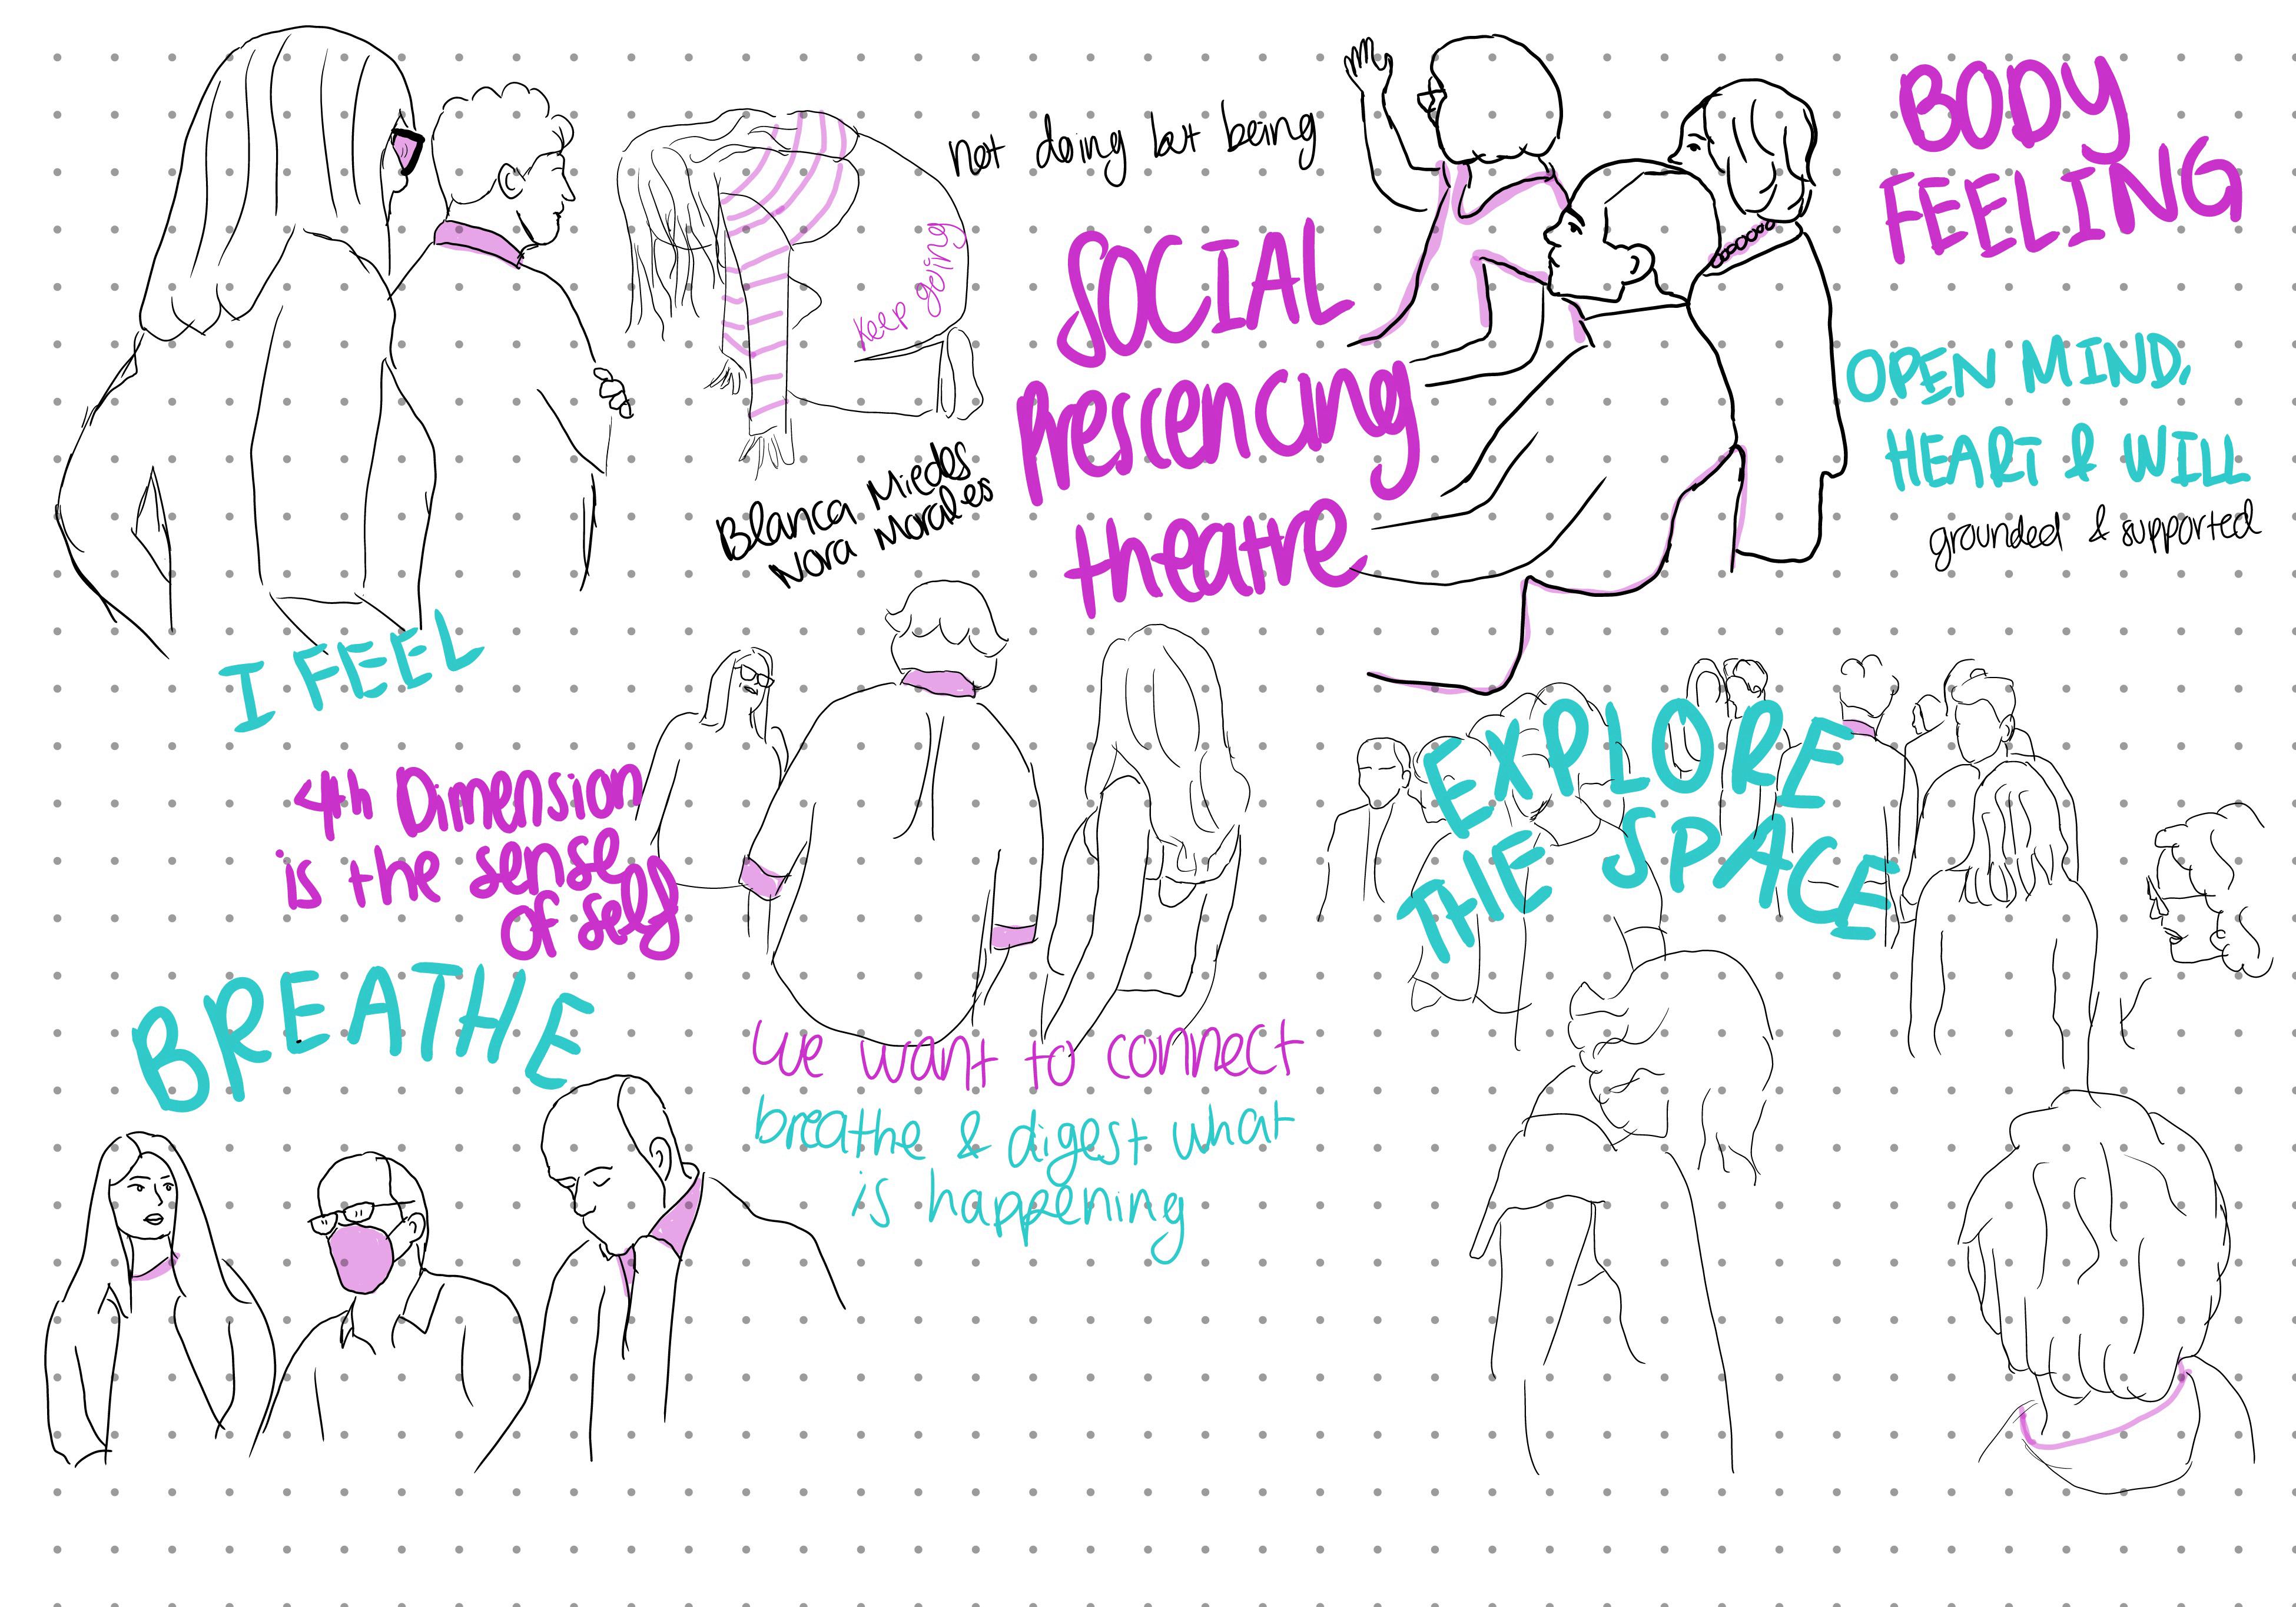 not doing but being
SOCIAL
Prescencing
theatre
Keep going
Blanca Miedes
Nora Morales
BODY
FEELING
OPEN MIND,
HEART & WILL
grounded & supported
I FEEL
4th Dimension
is the sense
of self
BREATHE
EXPLORE
THE SPACE
we want to connect
breathe & digest what
is happening